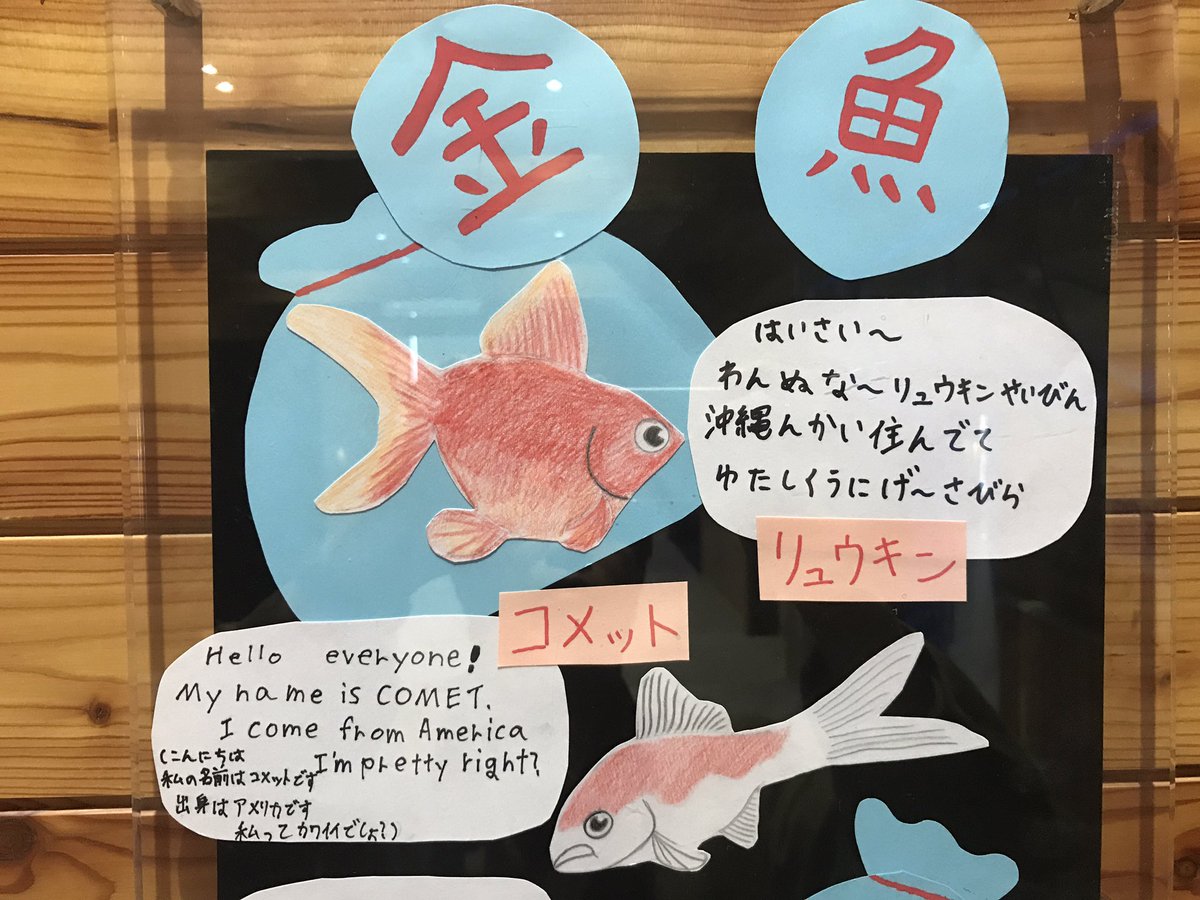 金魚
はいさい〜
わんぬな〜リュウキンやいびん
沖縄んかい住んでて
ゆたしイうにげ〜さびら
リュウキン
コメット
Hello everyone!
My name is COMET.
I come from America
I'm pretty right?
(こんにちは
私の名前はコメットです
出身はアメリカです
私ってカワイイでしょ?)